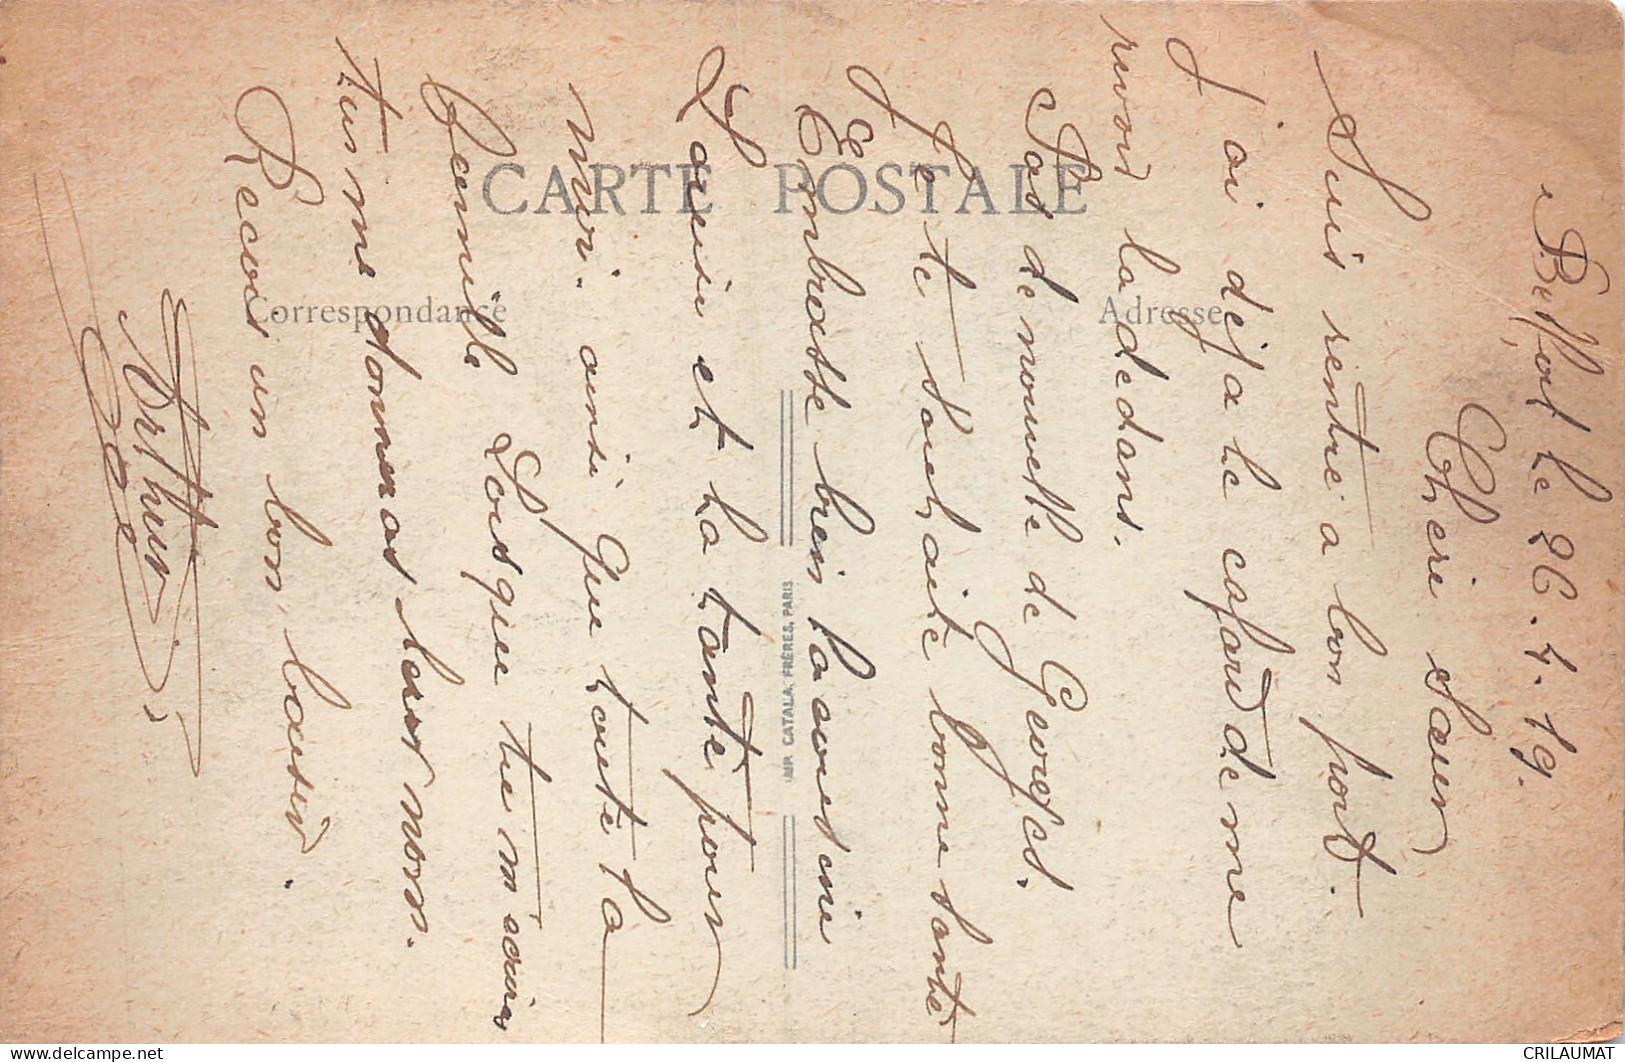 Belfort le 26.4.19.
Chère Sœur
Suis rentré a bon port.
J'ai déja le cafard de me
revoir la dedans.
Pas de nouvelle de Georges.
Je te souhaite bonne santé
Embrasse bien la
Louise et la tante pour
moi. ainsi que toute la
famille Lorsque tu m'écriras
tu me donneras leur nom.
Recois un bon baiser.
Arthur
CARTE POSTALE
Correspondance
Adresse
IMP. CATALA FRÈRES, PARIS
CRILAUMAT